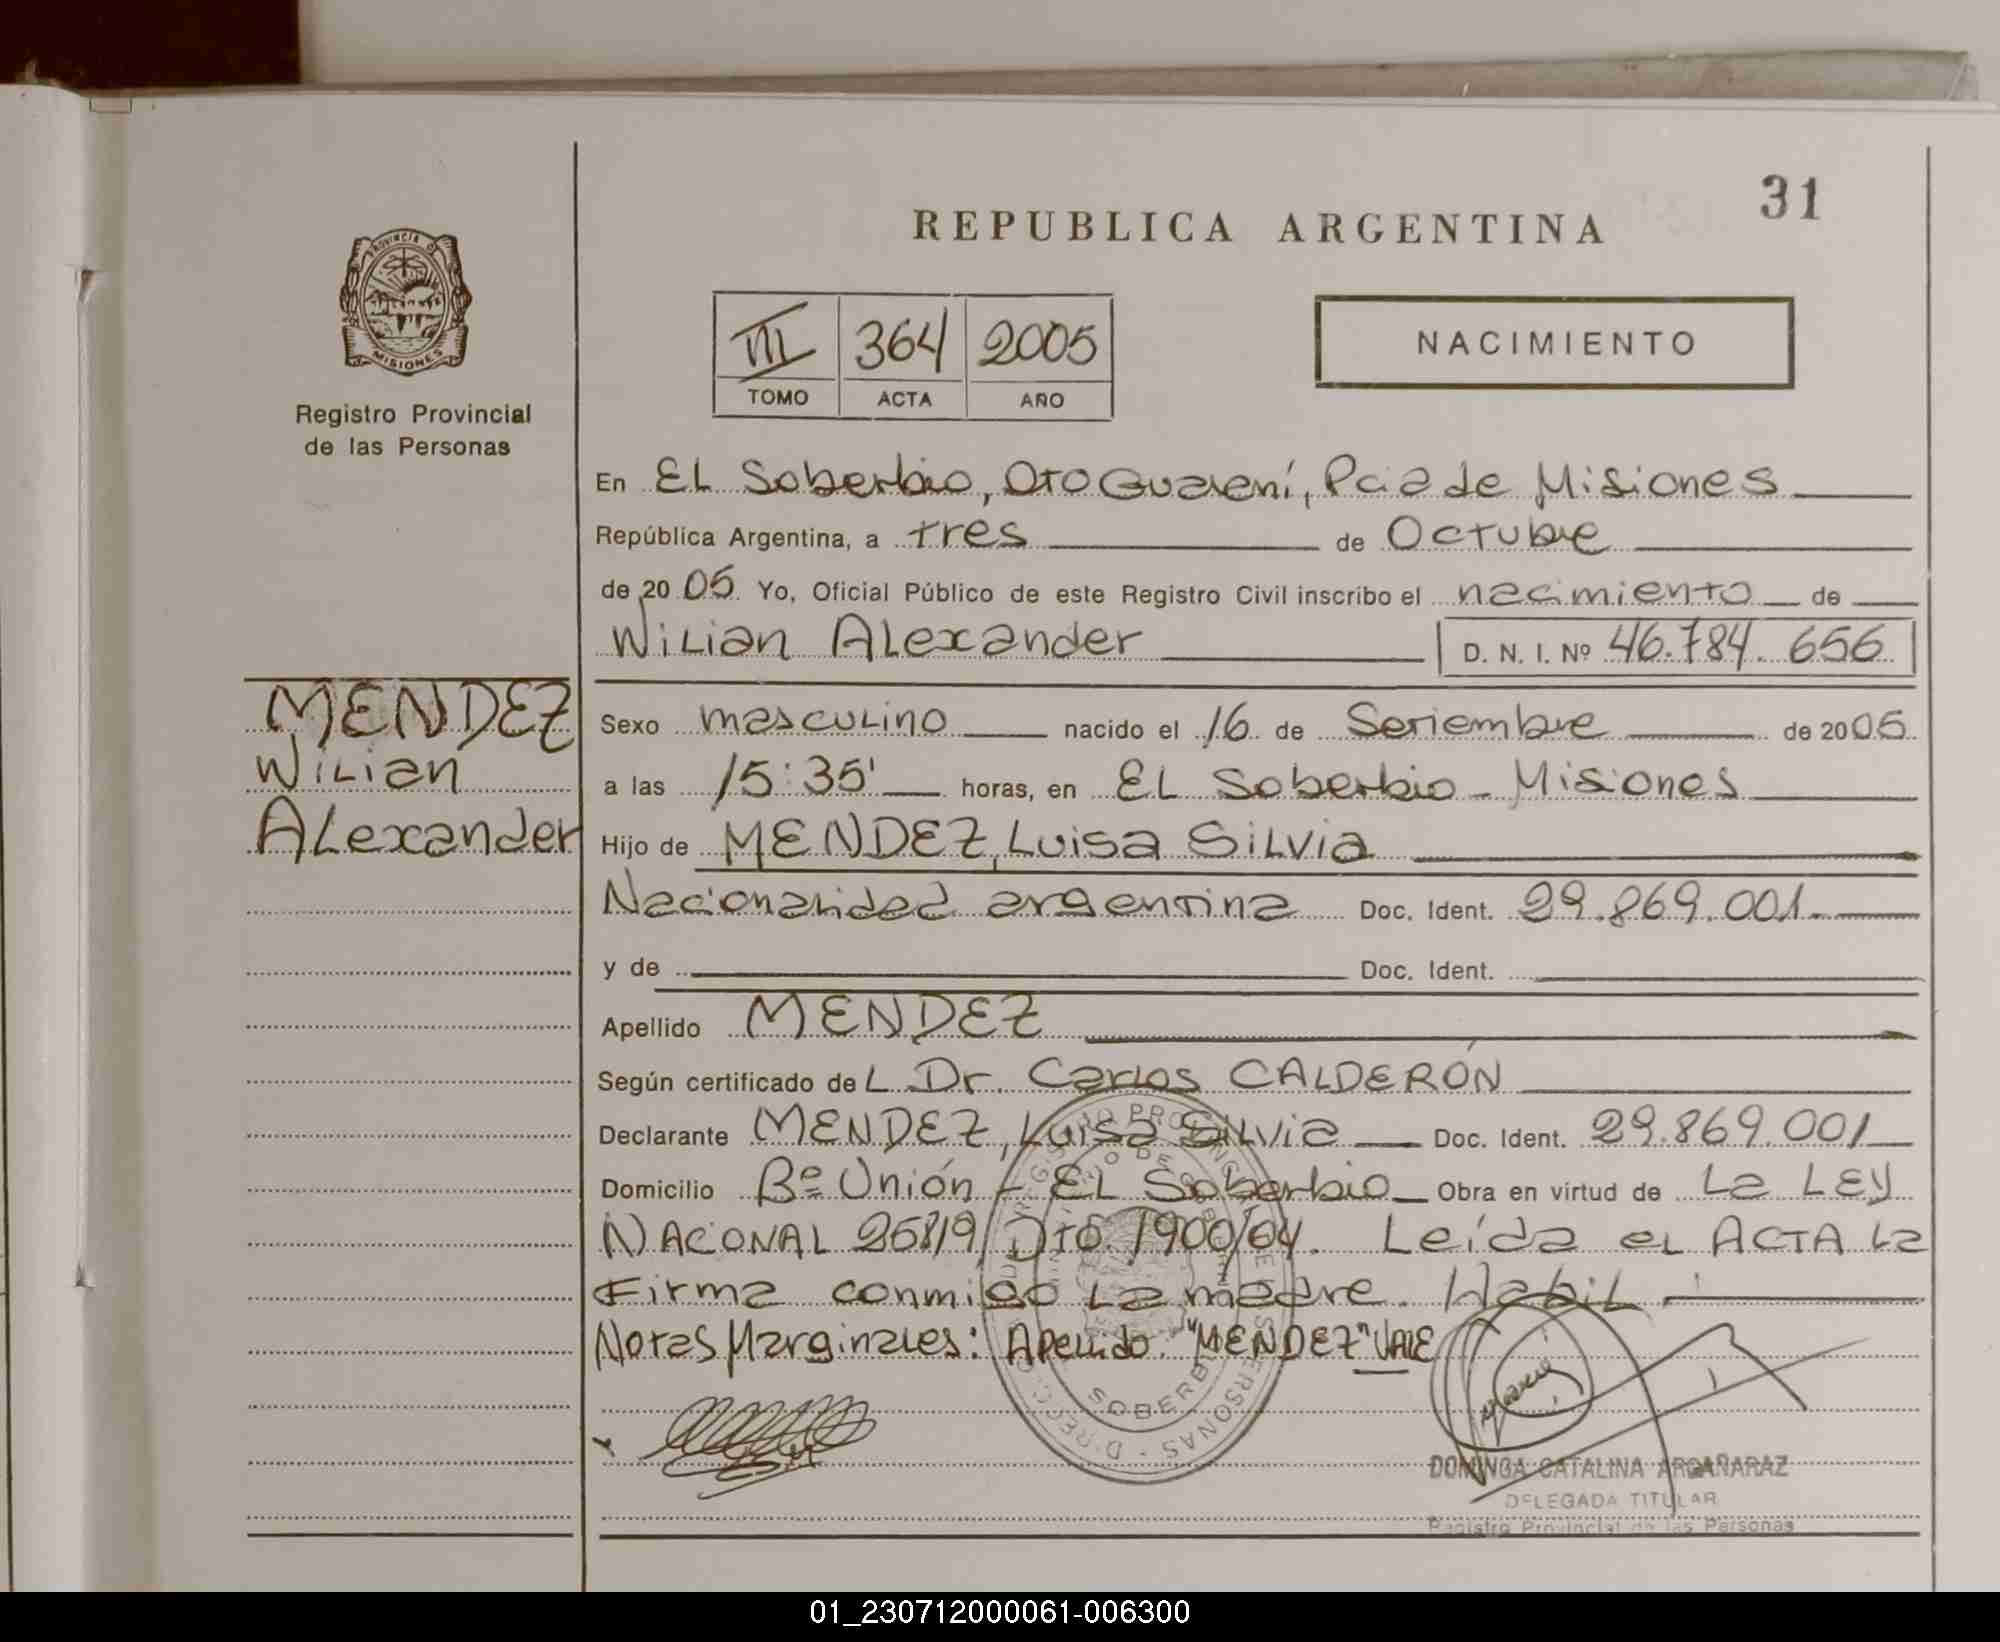 31
REPUBLICA ARGENTINA
PROVINCIA DE
MISIONES
Registro Provincial
de las Personas
III 364 2005
TOMO ACTA AÑO
NACIMIENTO
En EL Soberbio, Dto Guaraní, Pcia de Misiones
República Argentina, a tres de Octubre
de 2005 Yo, Oficial Público de este Registro Civil inscribo el nacimiento de
Wilian Alexander D. N. I. Nº 46.784.656
MENDEZ
Wilian
Alexander
Sexo masculino nacido el 16 de Setiembre de 2005
a las 15:35' horas, en EL Soberbio - Misiones
Hijo de MENDEZ, Luisa Silvia
Nacionalidad argentina Doc. Ident. 29.869.001
y de Doc. Ident.
Apellido MENDEZ
Según certificado del Dr. Carlos CALDERÓN
Declarante MENDEZ, Luisa Silvia Doc. Ident. 29.869.001
Domicilio Bº Unión - EL Soberbio Obra en virtud de La LEY
NACONAL 25819, DTO. 1900/04. Leída el ACTA la
Firma conmigo la madre. Habil
Notas Marginales: Apellido: "MENDEZ" VALE
SOBERB
DOMINGA CATALINA ARGAÑARAZ
DELEGADA TITULAR
Registro Provincial de las Personas
01_230712000061-006300